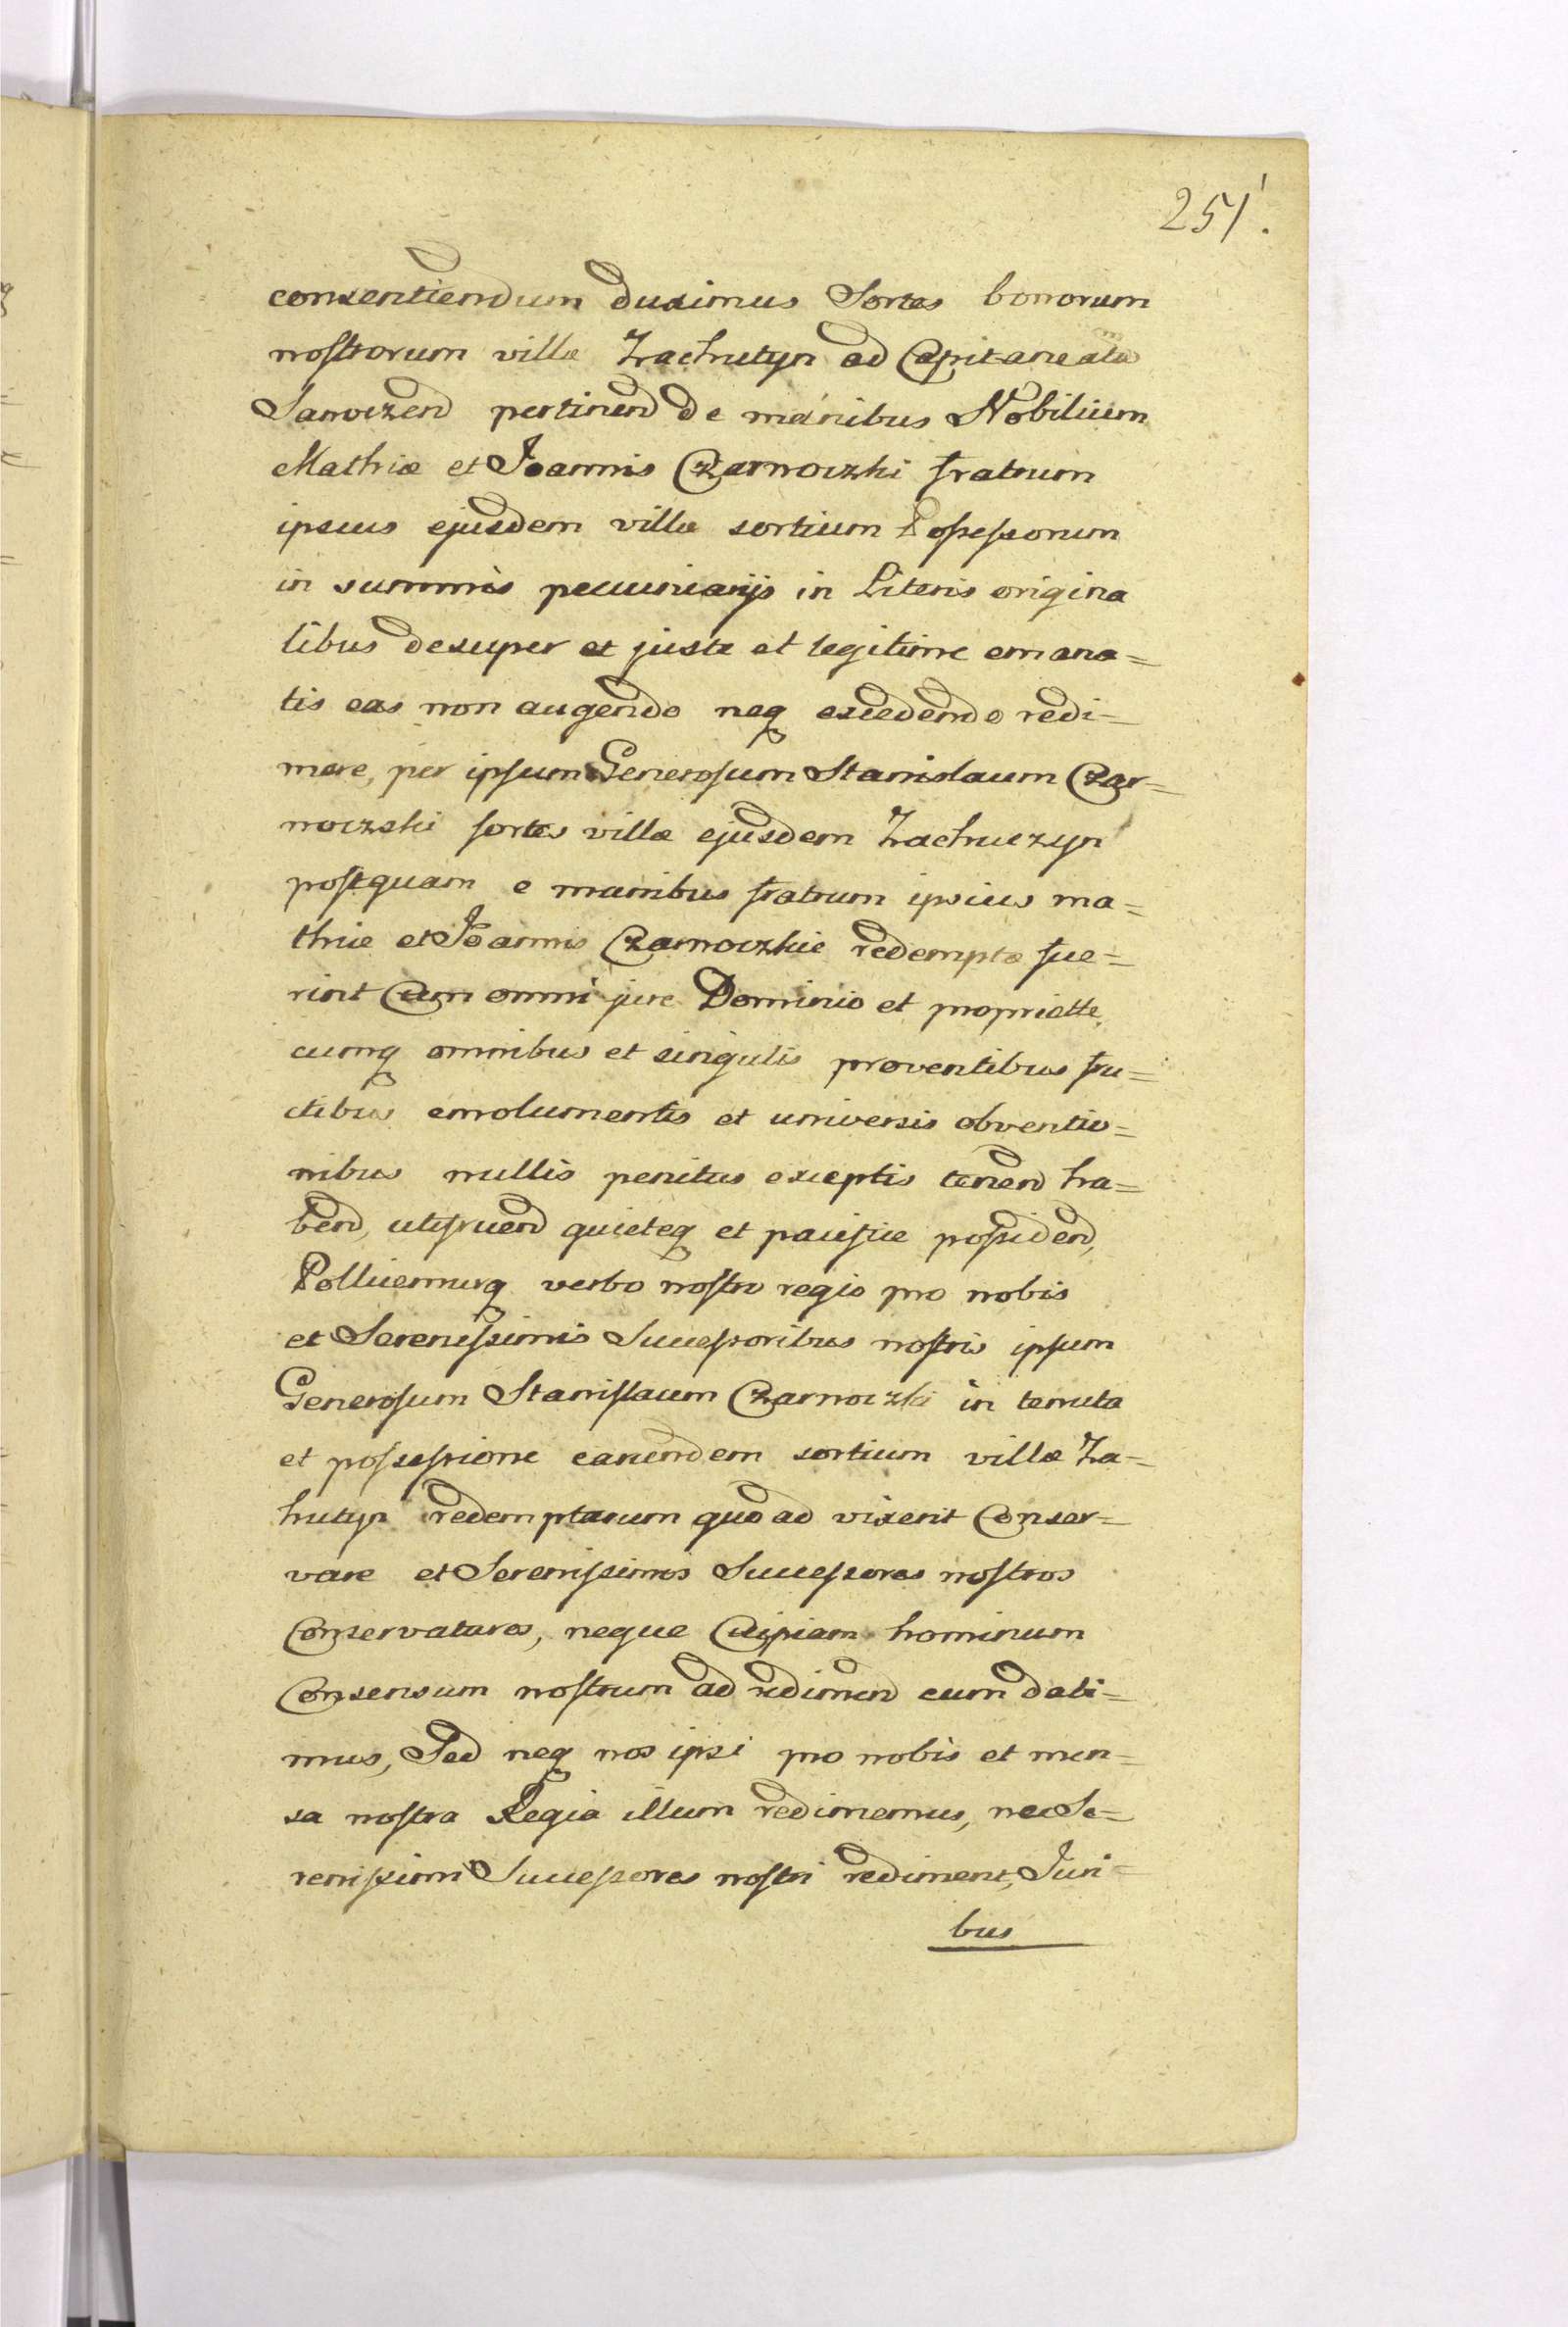 251.
consentiendum duximus Sortes bonorum
nostrorum villæ Zachutyn ad Capitaneatum
Sanoczen pertinen de manibus Nobilium
Mathiæ et Joannis Czarnoczki fratrum
ipsius ejusdem villæ sortium Possessorum
in summis pecuniarijs in Literis origina
libus desuper et juste et legitime emana=
tis eas non augendo neq excedendo redi=
mere, per ipsum Generosum Stanislaum Czar=
noczski sortes villæ ejusdem Zachuczyn
postquam e manibus fratrum ipsius ma=
thie et Joannis Czarnoczkie redemptæ fue=
rint Cum omni jure Dominio et propriette,
cumq omnibus et singulis proventibus fru=
ctibus emolumentis et universis obventio=
nibus nullis penitus exceptis tenend ha=
bend, utifruend quieteq et pacifice possidend,
Pollicemurq verbo nostro regio pro nobis
et Serenissimis Successoribus nostris ipsum
Generosum Stanislaum Czarnoczki in tenuta
et possessione earundem sortium villæ Za=
hutyn redemptarum quo ad vixerit Conser=
vare et Serenissimos Successores nostros
Conservaturos, neque Cuipiam hominum
Consensum nostrum ad redimend eum dabi=
mus, Sed neq nos ipsi pro nobis et men=
sa nostra Regia illum redimemus, nec Se=
renissimi Successores nostri rediment, Juri=
bus